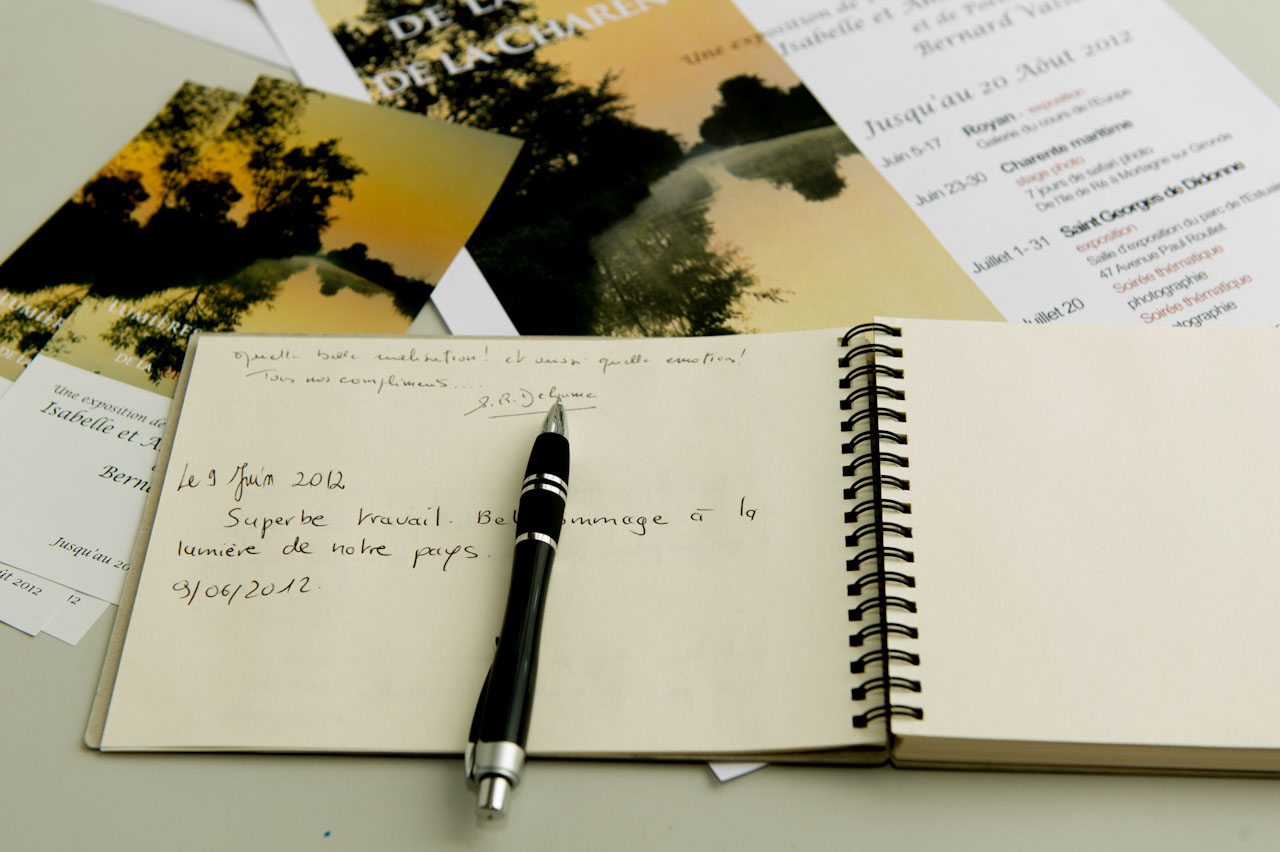 DE LA
DE LA CHAREN
Une expo
Isabelle et
et de
Bernard
Jusqu'au 20 Aout 2012
Juin 5-17
Royan - exposition
Galerie du cours de l'Europe
Juin 23-30
Charente maritime
stage photo
7 jours de safari photo
De l'Ile de Ré à Mortagne sur Gironde
Juillet 1-31
Saint Georges de Didonne
exposition
Salle d'exposition du parc de l'Estuai
47 Avenue Paul Roullet
Soirée thématique
photographie
uillet 20
Soirée thématique
otographie
LUMIÈR
LUMIÈRE
DE LA
DE LA
Une exposition de
Isabelle et A
Berna
Jusqu'au 20
ût 2012
12
Quelle belle réalisation! et aussi quelle émotion!
Tous nos compliments....
Le 9 Juin 2012
Superbe travail. Bel ommage à la
lumière de notre pays.
9/06/2012.